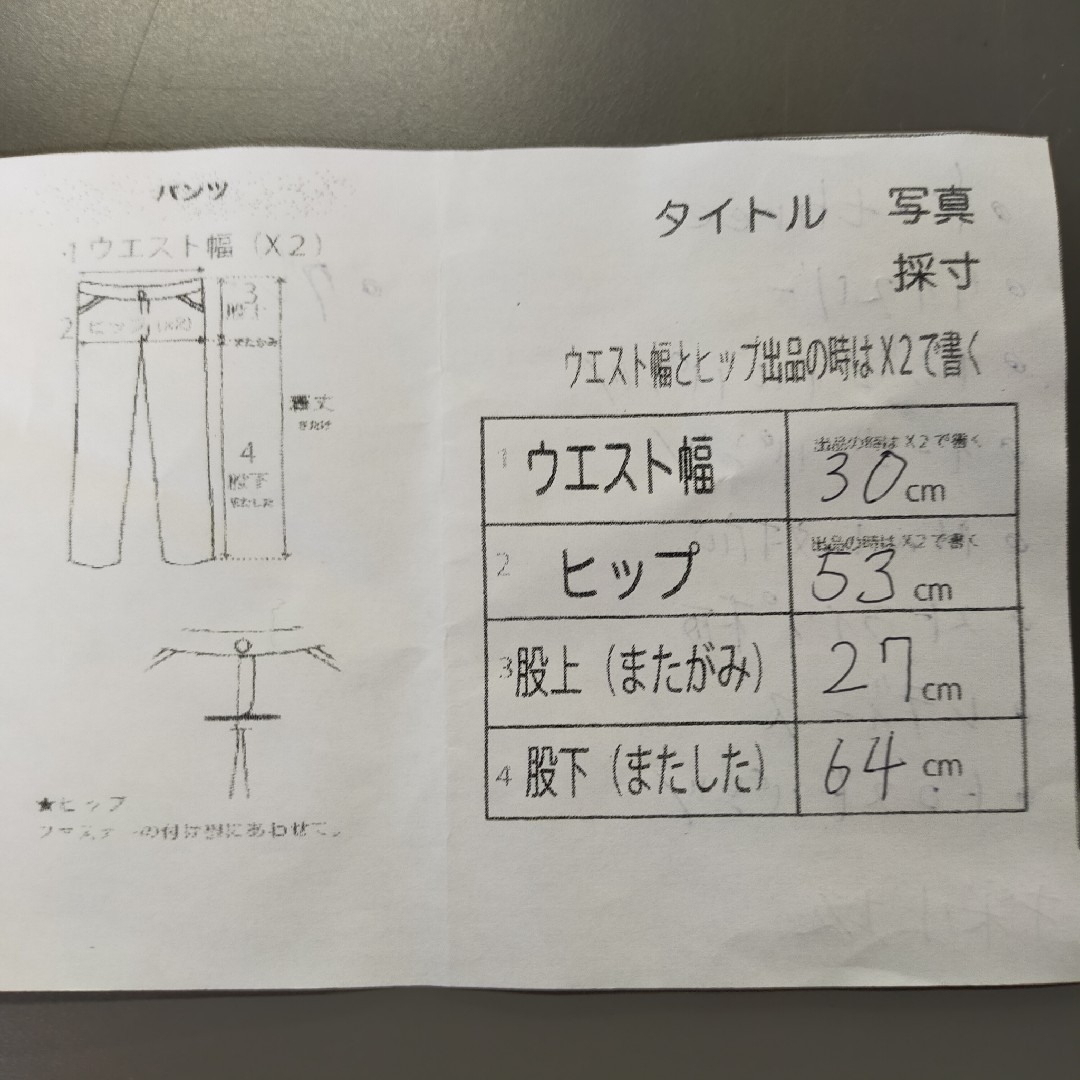 パンツ
1 ウエスト幅（X2）
3
股上
またがみ
2 ヒップ（X2）
着丈
きたけ
4
股下
またした
★ヒップ
ファスナーの付け根にあわせて。
タイトル 写真
採寸
ウエスト幅とヒップ出品の時はX2で書く
1 ウエスト幅 出品の時はX2で書く
30cm
2 ヒップ 出品の時はX2で書く
53cm
3 股上（またがみ） 27cm
4 股下（またした） 64cm